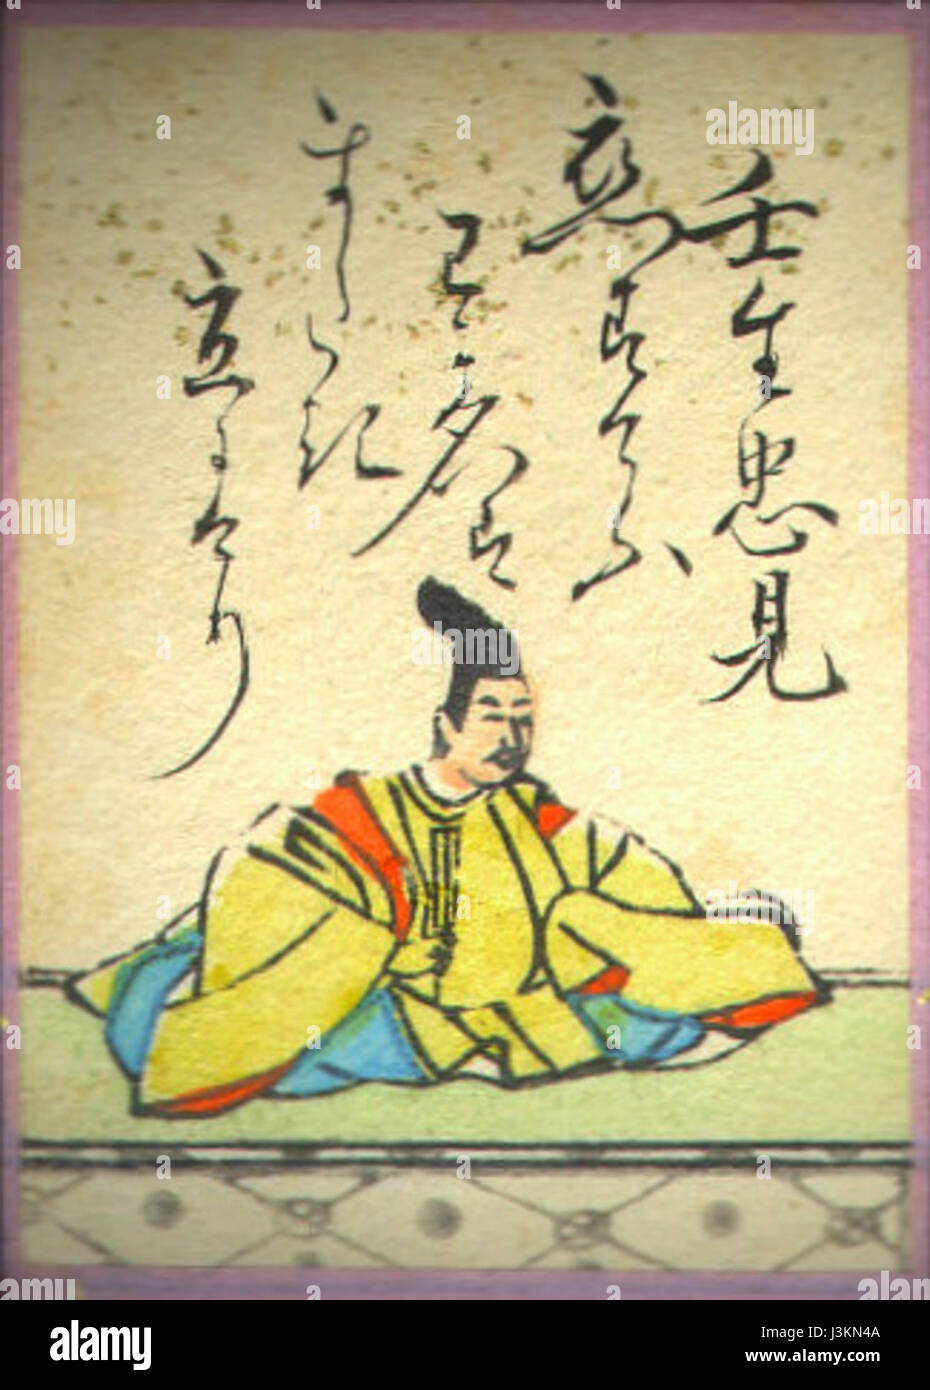 壬生忠見
恋すてふ
わか名は
またき
立にけり
alamy
alamy
Image ID: J3KN4A
www.alamy.com